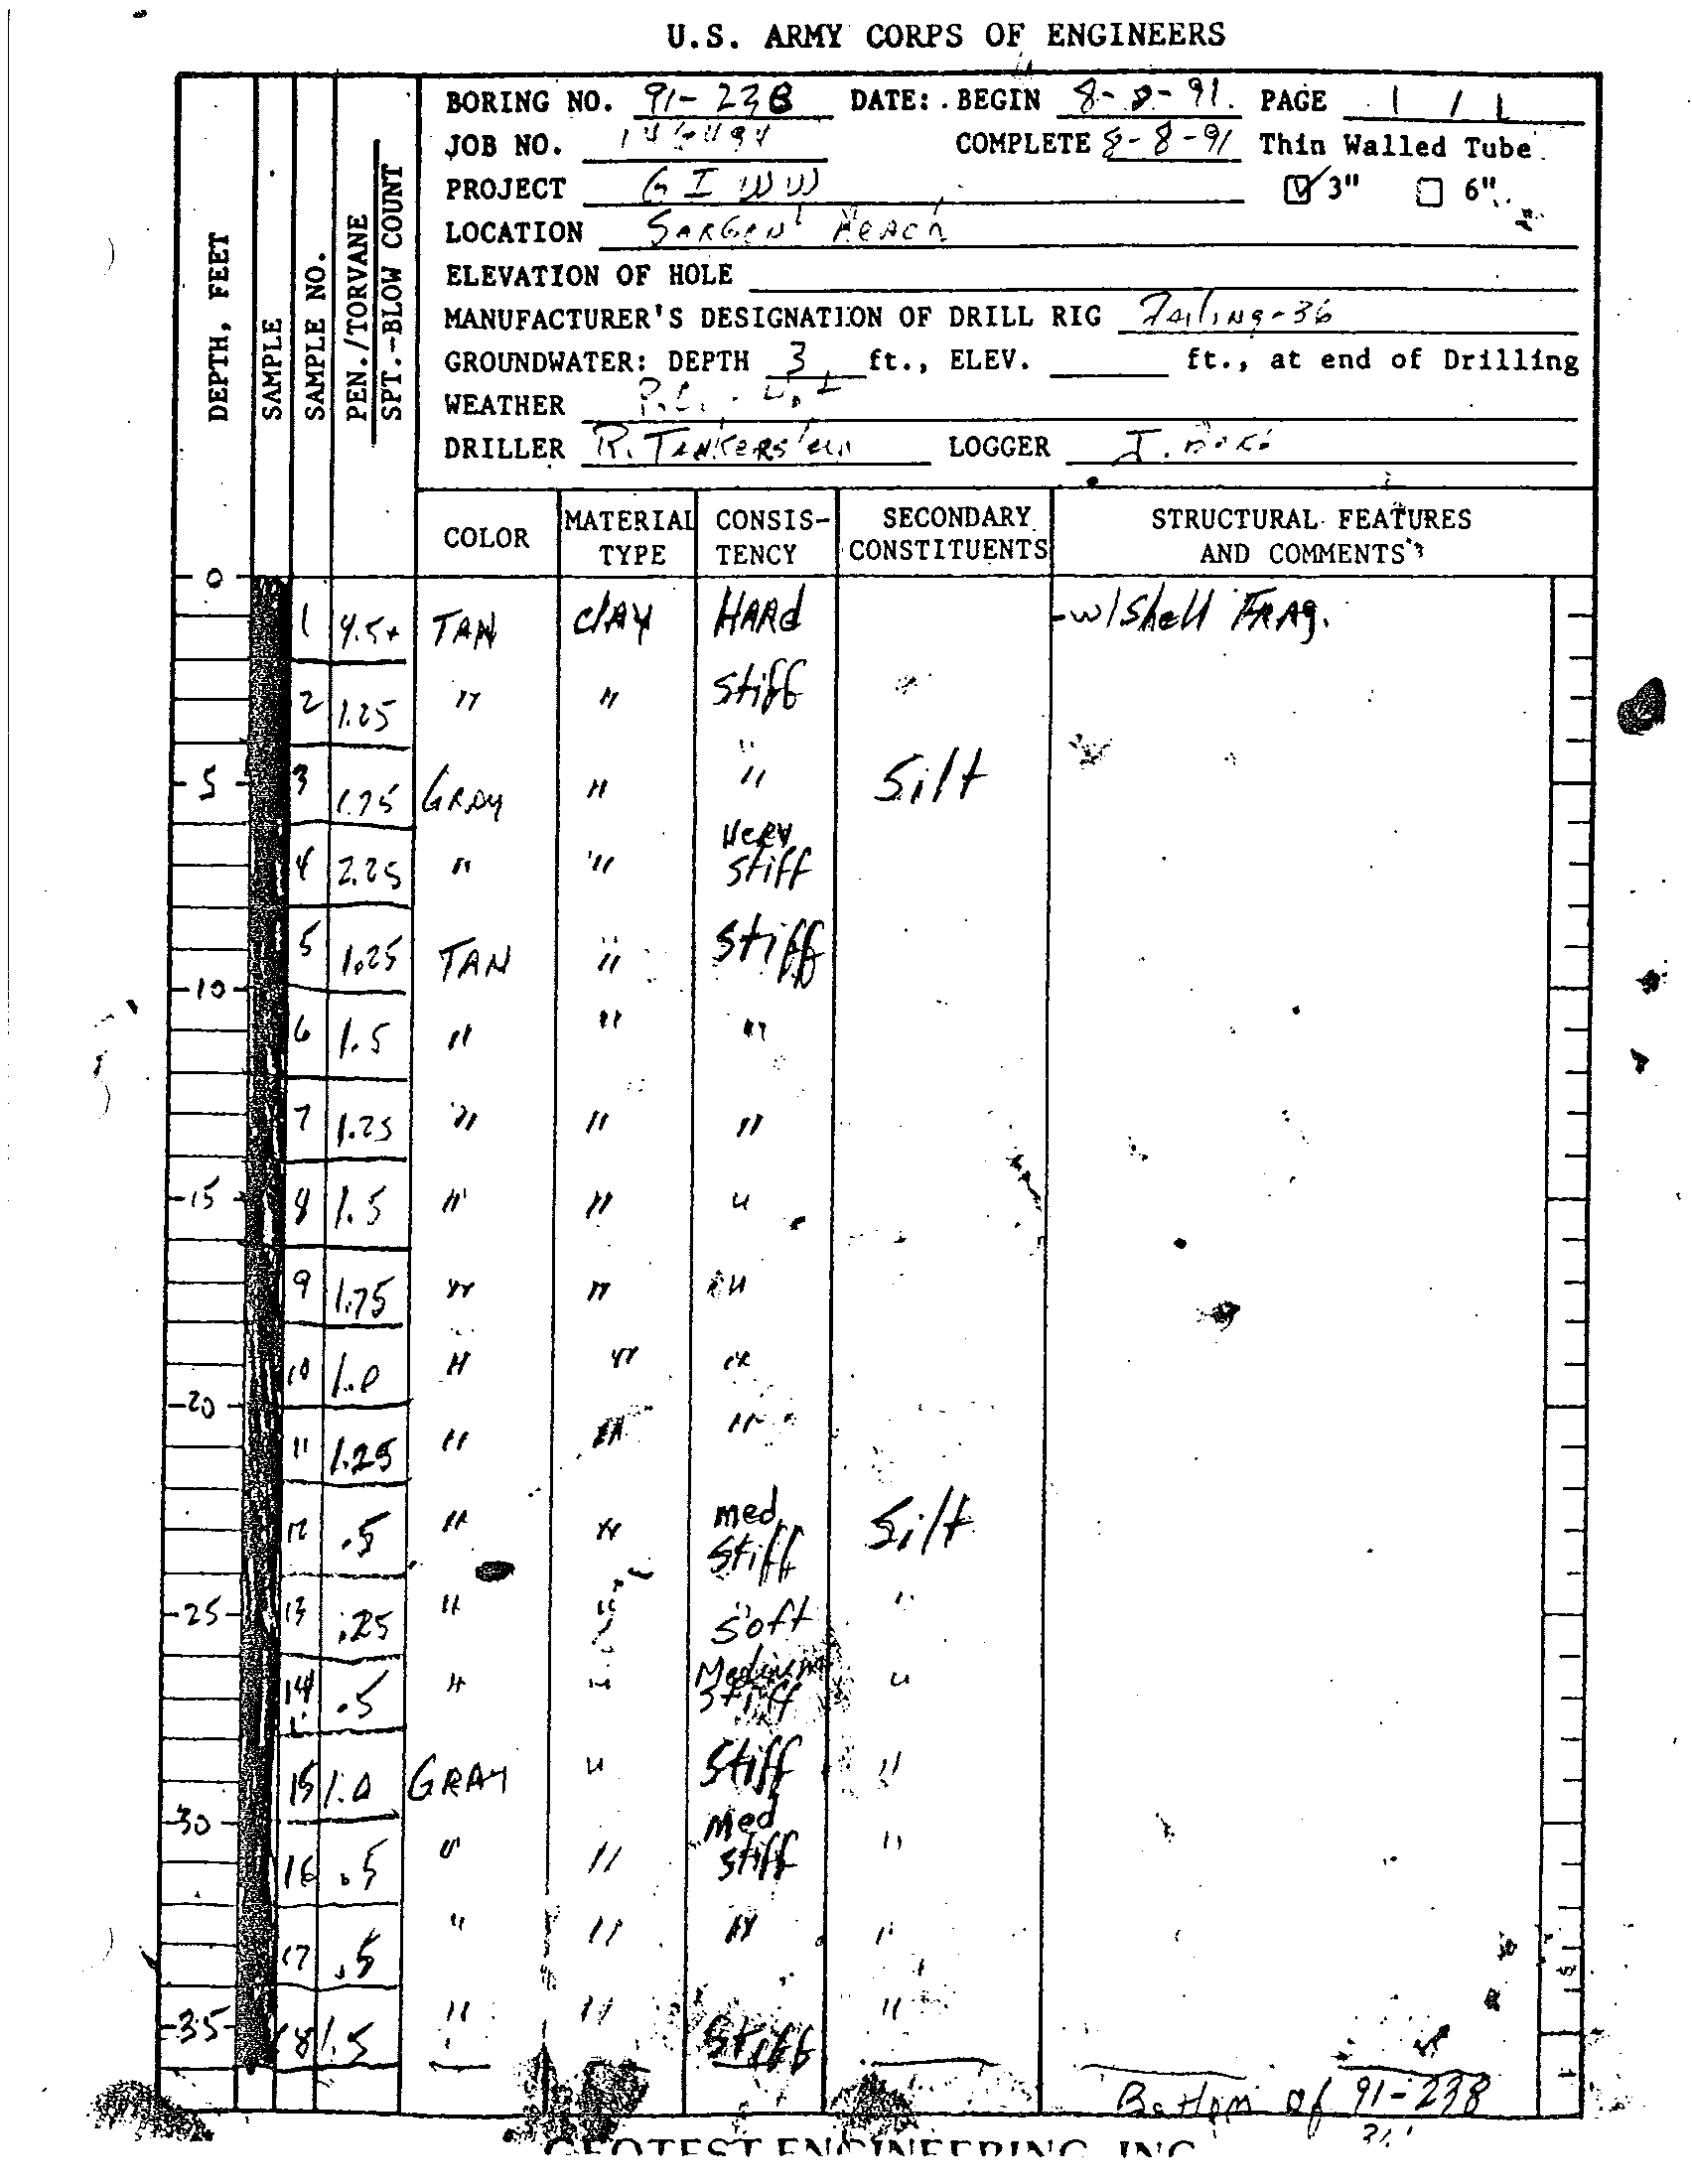 U.S. ARMY CORPS OF ENGINEERS
BORING NO. 91-238 DATE: BEGIN 8-8-91 PAGE 1 / 1
JOB NO. COMPLETE 8-8-91 Thin Walled Tube
PROJECT GIWW 3" 6"
LOCATION SARGENT
ELEVATION OF HOLE
MANUFACTURER'S DESIGNATION OF DRILL RIG Failing-36
GROUNDWATER: DEPTH 3 ft., ELEV. ft., at end of Drilling
WEATHER
DRILLER R. LOGGER J.
DEPTH, FEET
SAMPLE
SAMPLE NO.
PEN./TORVANE
SPT.-BLOW COUNT
COLOR MATERIAL TYPE CONSIS-TENCY SECONDARY CONSTITUENTS STRUCTURAL FEATURES AND COMMENTS
0
1 4.5+ TAN CLAY HARd -w/Shell FRAg.
2 1.25 " " Stiff
5 3 1.75 GRAy " " Silt
4 2.25 " " Very stiff
5 1.25 TAN " Stiff
10
6 1.5 " " "
7 1.25 " " "
15 8 1.5 " " "
9 1.75 " " "
10 1.0 " " "
20
11 1.25 " " "
12 .5 " " med stiff Silt
25 13 .25 " " Soft "
14 .5 " " Medium Stiff "
15 1.0 GRAY " Stiff "
30
16 .5 " " Med stiff "
17 .5 " " " "
35 18 1.5 " " Stiff "
Bottom of 91-238
GEOTEST ENGINEERING, INC.